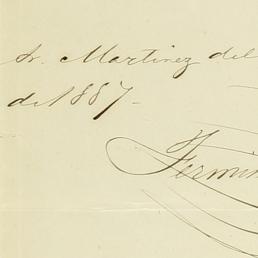 Sr. Martinez del
de 1887-
Fermin